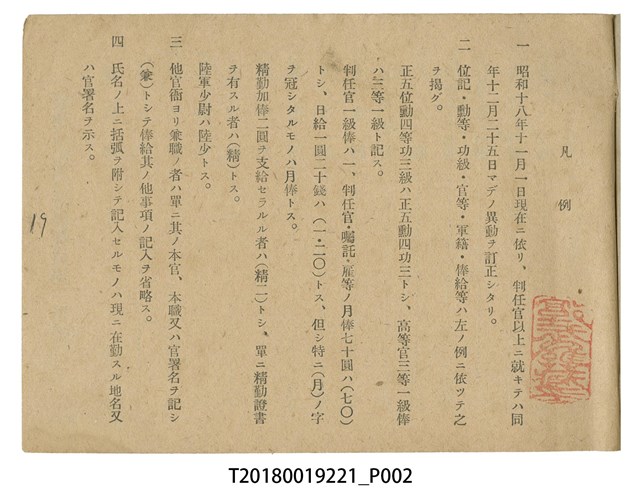 凡例
一 昭和十八年十一月一日現在ニ依リ、判任官以上ニ就キテハ同
年十二月二十五日マデノ異動ヲ訂正シタリ。
二 位記・勳等・功級・官等・軍籍・俸給等ハ左ノ例ニ依ツテ之
ヲ揭グ。
正五位勳四等功三級ハ正五勳四功三トシ、高等官三等一級俸
ハ三等一級ト記ス。
判任官一級俸ハ一、判任官・囑託・雇等ノ月俸七十圓ハ(七〇)
トシ、日給一圓二十錢ハ(一・二〇)トス、但シ特ニ(月)ノ字
ヲ冠シタルモノハ月俸トス。
精勤加俸二圓ヲ支給セラルル者ハ(精二)トシ、單ニ精勤證書
ヲ有スル者ハ(精)トス。
陸軍少尉ハ陸少トス。
三 他官衙ヨリ兼職ノ者ハ單ニ其ノ本官、本職又ハ官署名ヲ記シ
(兼)トシテ俸給其ノ他事項ノ記入ヲ省略ス。
四 氏名ノ上ニ括弧ヲ附シテ記入セルモノハ現ニ在勤スル地名又
ハ官署名ヲ示ス。
19
T20180019221_P002